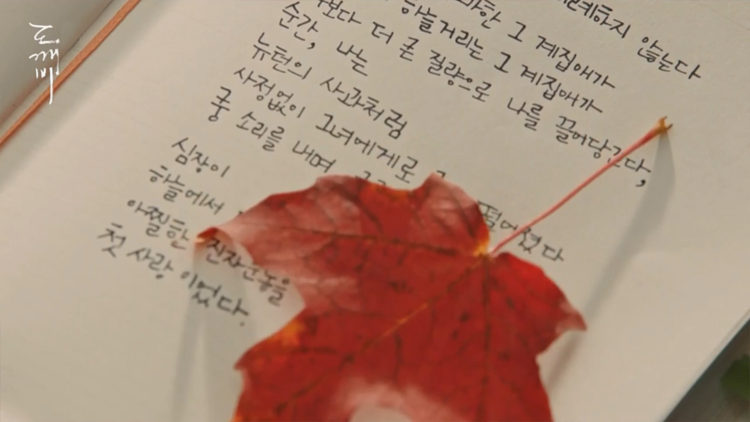 도깨비
않는다
그 계집애가
하늘거리는 그 계집애가
더 큰 질량으로 나를 끌어당긴다,
순간, 나는
뉴턴의 사과처럼
사정없이 그녀에게로 떨어졌다
쿵 소리를 내며
심장이
하늘에서
아찔한 진자운동을
첫 사랑 이었다.